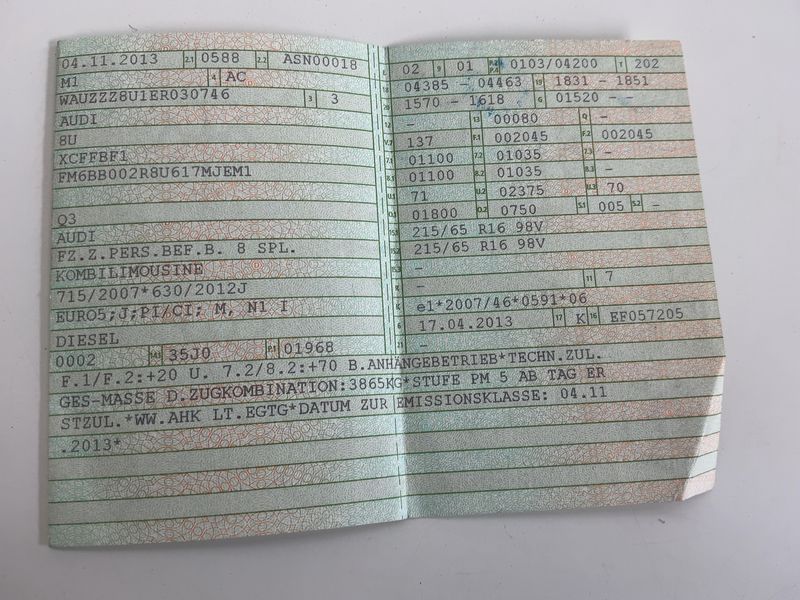 04.11.2013 2.1 0588 2.2 ASN00018
M1 4 AC
WAUZZZ8U1ER030746 3 3
AUDI
8U
XCFFBF1
FM6BB002R8U617MJEM1
Q3
AUDI
FZ.Z.PERS.BEF.B. 8 SPL.
KOMBILIMOUSINE
715/2007*630/2012J
EURO5;J;PI/CI; M, N1 I
DIESEL
0002 14.1 35J0 P.1 01968
02 9 01 P.2 P.4 0103/04200 T 202
18 04385 - 04463 19 1831 - 1851
20 1570 - 1618 G 01520 - -
12 - 13 00080 Q -
V.7 137 F.1 002045 F.2 002045
7.1 01100 7.2 01035 7.3 -
8.1 01100 8.2 01035 8.3 -
U.1 71 U.2 02375 U.3 70
O.1 01800 O.2 0750 S.1 005 S.2 -
215/65 R16 98V
215/65 R16 98V
-
- 11 7
K e1*2007/46*0591*06
6 17.04.2013 17 K 16 EF057205
21 -
F.1/F.2:+20 U. 7.2/8.2:+70 B.ANHÄNGEBETRIEB*TECHN.ZUL.
GES-MASSE D.ZUGKOMBINATION:3865KG*STUFE PM 5 AB TAG ER
STZUL.*WW.AHK LT.EGTG*DATUM ZUR EMISSIONSKLASSE: 04.11
.2013*